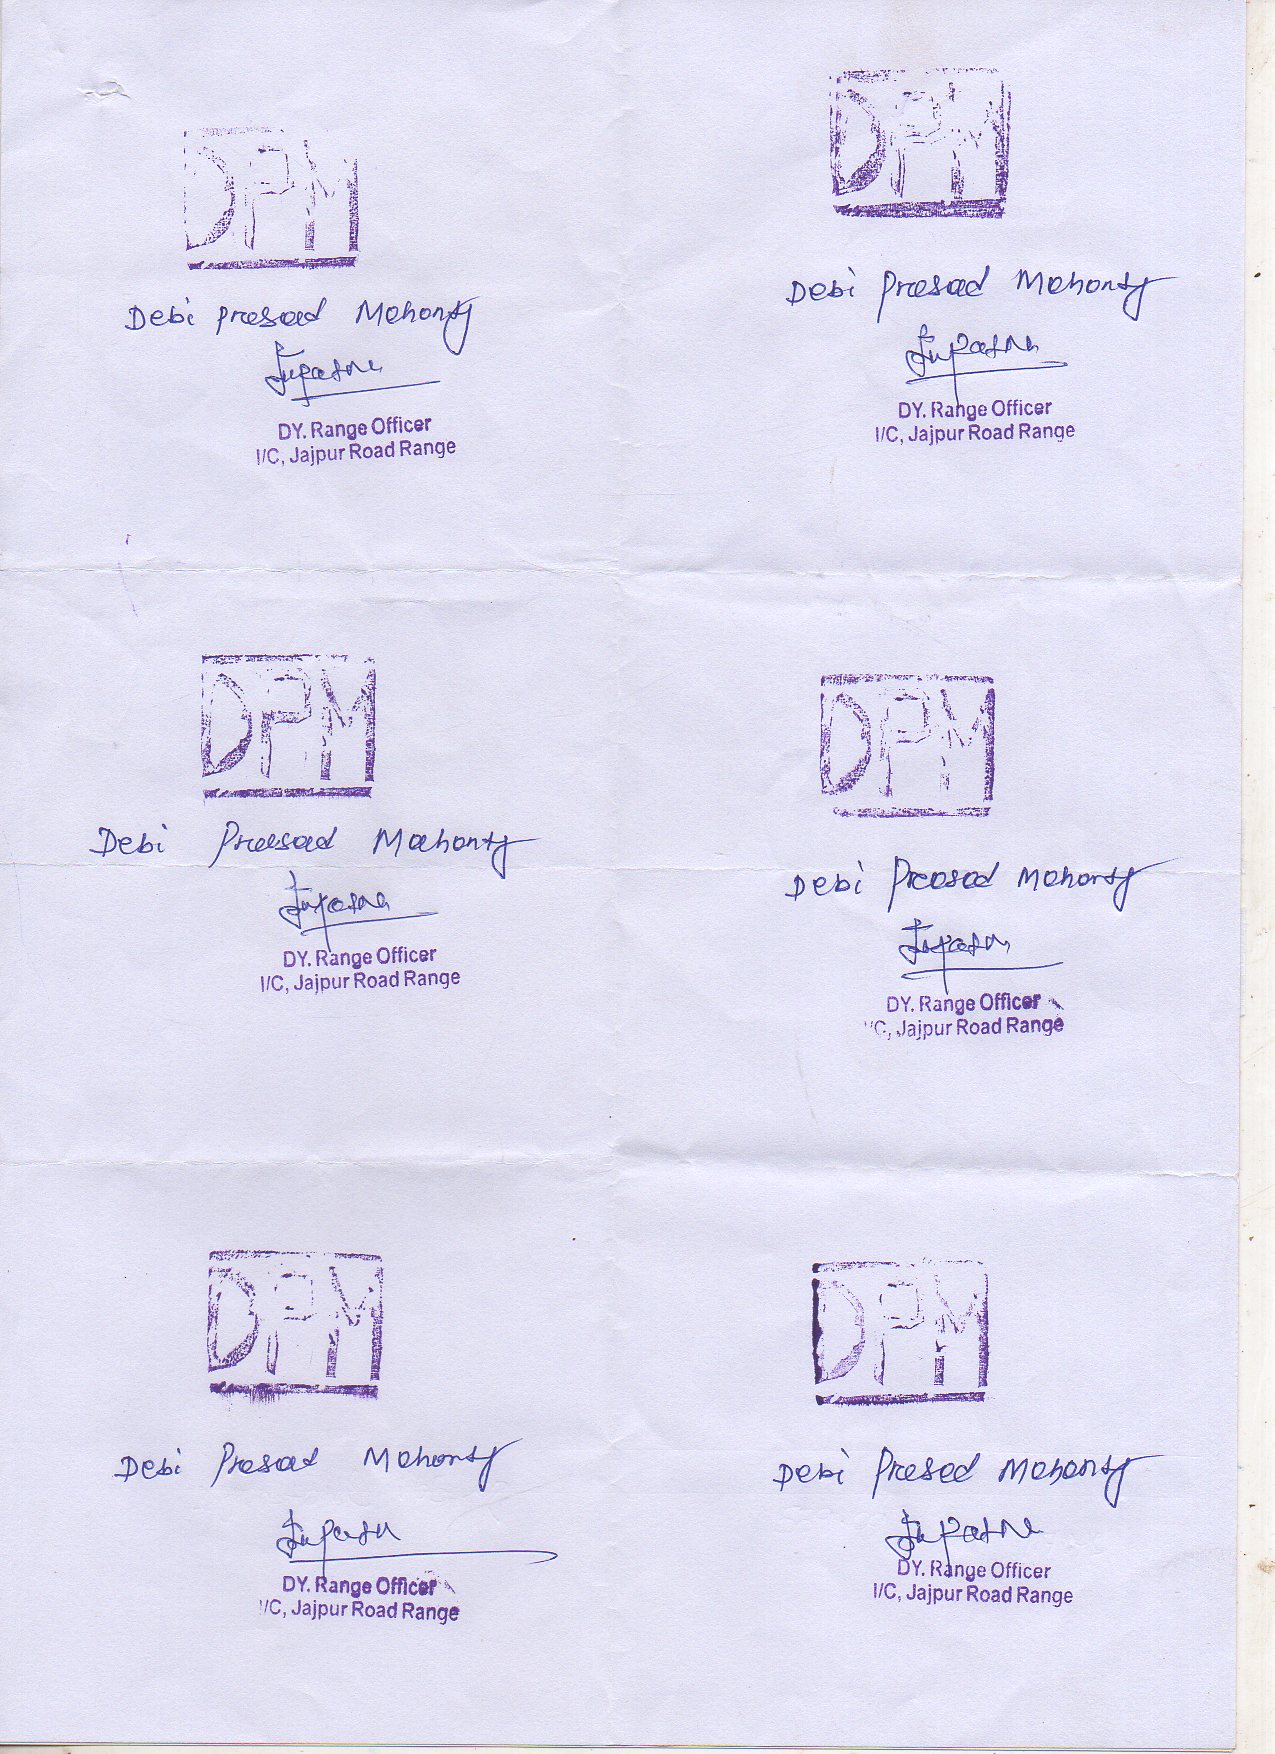 DPM
Debi Prasad Mohanty
DY. Range Officer
I/C, Jajpur Road Range
DPM
Debi Prasad Mohanty
DY. Range Officer
I/C, Jajpur Road Range
DPM
Debi Prasad Mohanty
DY. Range Officer
I/C, Jajpur Road Range
DPM
Debi Prasad Mohanty
DY. Range Officer
I/C, Jajpur Road Range
DPM
Debi Prasad Mohanty
DY. Range Officer
I/C, Jajpur Road Range
DPM
Debi Prasad Mohanty
DY. Range Officer
I/C, Jajpur Road Range